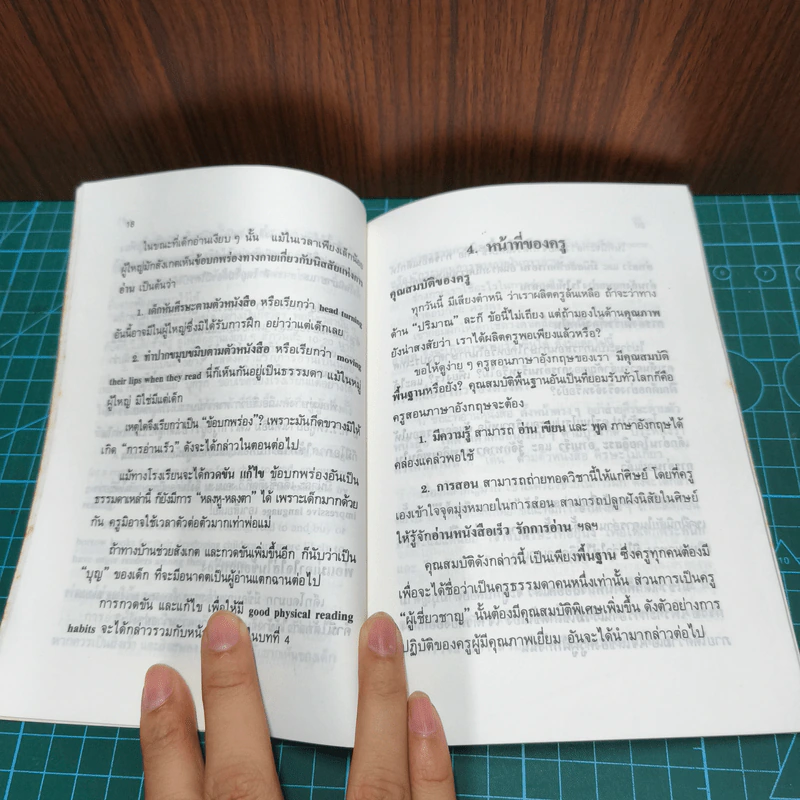 16
ในขณะที่เด็กอ่านเงียบ ๆ นั้น แม้ในเวลาเพียงเล็กน้อย
ผู้ใหญ่มักสังเกตเห็นข้อบกพร่องทางกายเกี่ยวกับนิสัยแห่งการ
อ่าน เป็นต้นว่า
1. เด็กหันศีรษะตามตัวหนังสือ หรือเรียกว่า head turning
อันนี้อาจมีในผู้ใหญ่ซึ่งมิได้รับการฝึก อย่าว่าแต่เด็กเลย
2. ทำปากขมุบขมิบตามตัวหนังสือ หรือเรียกว่า moving
their lips when they read นี่ก็เห็นกันอยู่เป็นธรรมดา แม้ในหมู่
ผู้ใหญ่ มิใช่มีแต่เด็ก
เหตุใดจึงเรียกว่าเป็น “ข้อบกพร่อง”? เพราะมันกีดขวางมิให้
เกิด “การอ่านเร็ว” ดังจะได้กล่าวในตอนต่อไป
แม้ทางโรงเรียนจะได้กวดขัน แก้ไข ข้อบกพร่องอันเป็น
ธรรมดาเหล่านี้ ก็ยังมีการ “หลงหู-หลงตา” ได้ เพราะเด็กมากด้วย
กัน ครูมิอาจใช้เวลาตัวต่อตัวมากเท่าพ่อแม่
ถ้าทางบ้านช่วยสังเกต และกวดขันเพิ่มขึ้นอีก ก็นับว่าเป็น
“บุญ” ของเด็ก ที่จะมีอนาคตเป็นผู้อ่านแตกฉานต่อไป
การกวดขัน และแก้ไข เพื่อให้มี good physical reading
habits จะได้กล่าวรวมกับหน้า นบทที่ 4
4. หน้าที่ของครู
คุณสมบัติของครู
ทุกวันนี้ มีเสียงตำหนิ ว่าเราผลิตครูล้นเหลือ ถ้าจะว่าทาง
ด้าน “ปริมาณ” ละก็ ข้อนี้ไม่เถียง แต่ถ้ามองในด้านคุณภาพ
ยังน่าสงสัยว่า เราได้ผลิตครูพอเพียงแล้วหรือ?
ขอให้ดูง่าย ๆ ครูสอนภาษาอังกฤษของเรา มีคุณสมบัติ
พื้นฐานหรือยัง? คุณสมบัติพื้นฐานอันเป็นที่ยอมรับทั่วโลกก็คือ
ครูสอนภาษาอังกฤษจะต้อง
1. มีความรู้ สามารถ อ่าน เขียน และ พูด ภาษาอังกฤษได้
คล่องแคล่วพอใช้
2. การสอน สามารถถ่ายทอดวิชานี้ให้แก่ศิษย์ โดยที่ครู
เองเข้าใจจุดมุ่งหมายในการสอน สามารถปลูกฝังนิสัยในศิษย์
ให้รู้จักอ่านหนังสือเร็ว รักการอ่าน ฯลฯ
คุณสมบัติดังกล่าวนี้ เป็นเพียงพื้นฐาน ซึ่งครูทุกคนต้องมี
เพื่อจะได้ชื่อว่าเป็นครูธรรมดาคนหนึ่งเท่านั้น ส่วนการเป็นครู
“ผู้เชี่ยวชาญ” นั้นต้องมีคุณสมบัติพิเศษเพิ่มขึ้น ดังตัวอย่างการ
ปฏิบัติของครูผู้มีคุณภาพเยี่ยม อันจะได้นำมากล่าวต่อไป